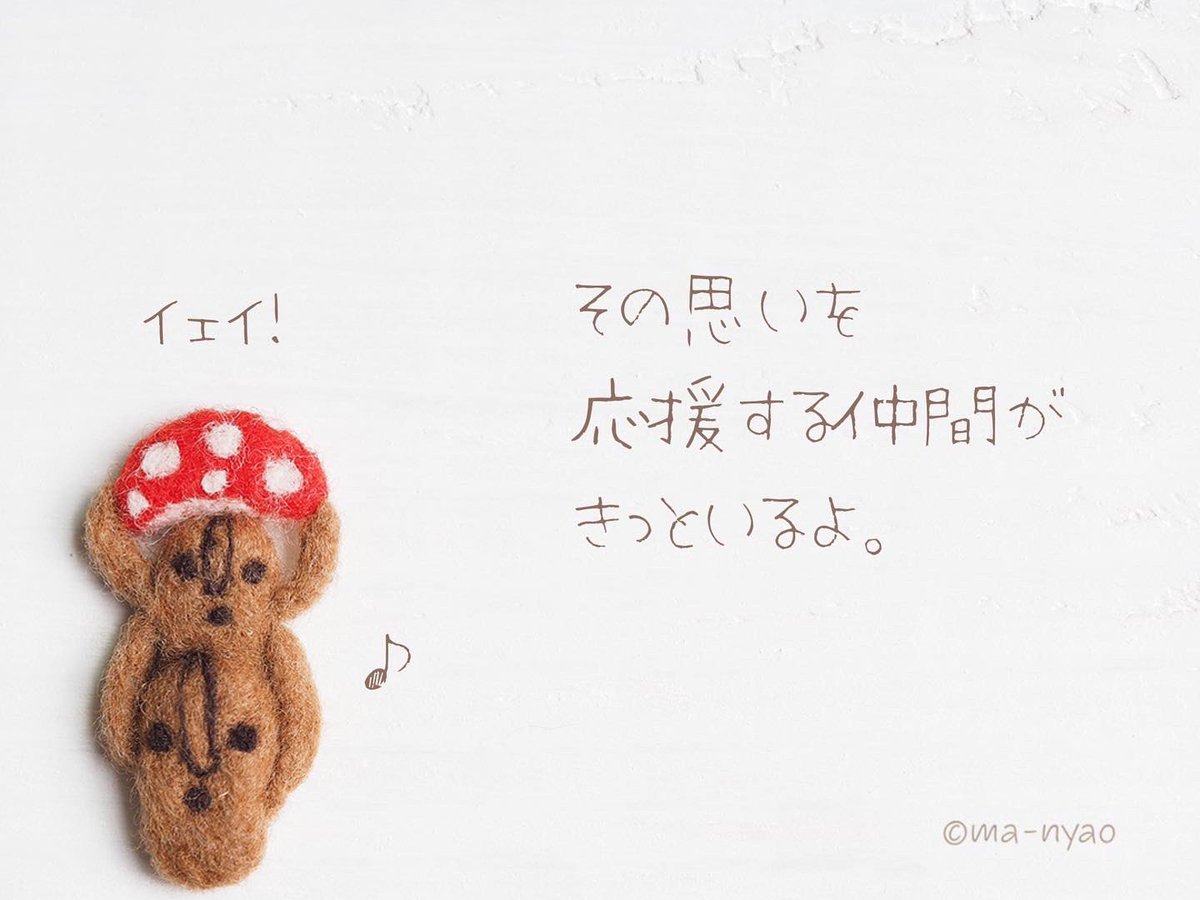 イェイ!
その思いを
応援する仲間が
きっといるよ。
©ma-nyao